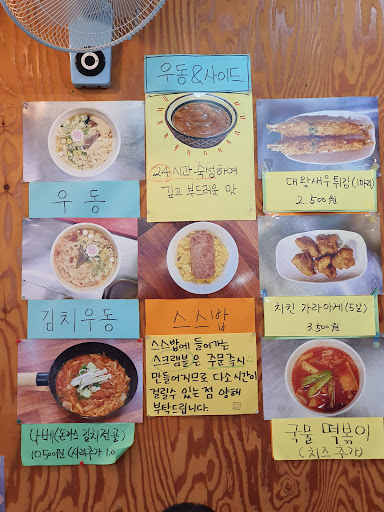 우동&사이드
24시간 숙성하여
깊고 부드러운 맛
우동
대왕새우튀김(1마리)
2.500원
김치우동
스스밥
치킨 가라아게(5살)
3.500원
스스밥에 들어가는
스크램블은 주문즉시
만들어지므로 다소시간이
걸릴수 있는 점 양해
부탁드립니다.
나베(돈까스 김치전골)
10.500원 (사리추가 1.0
국물 떡볶이
(치즈 추가)